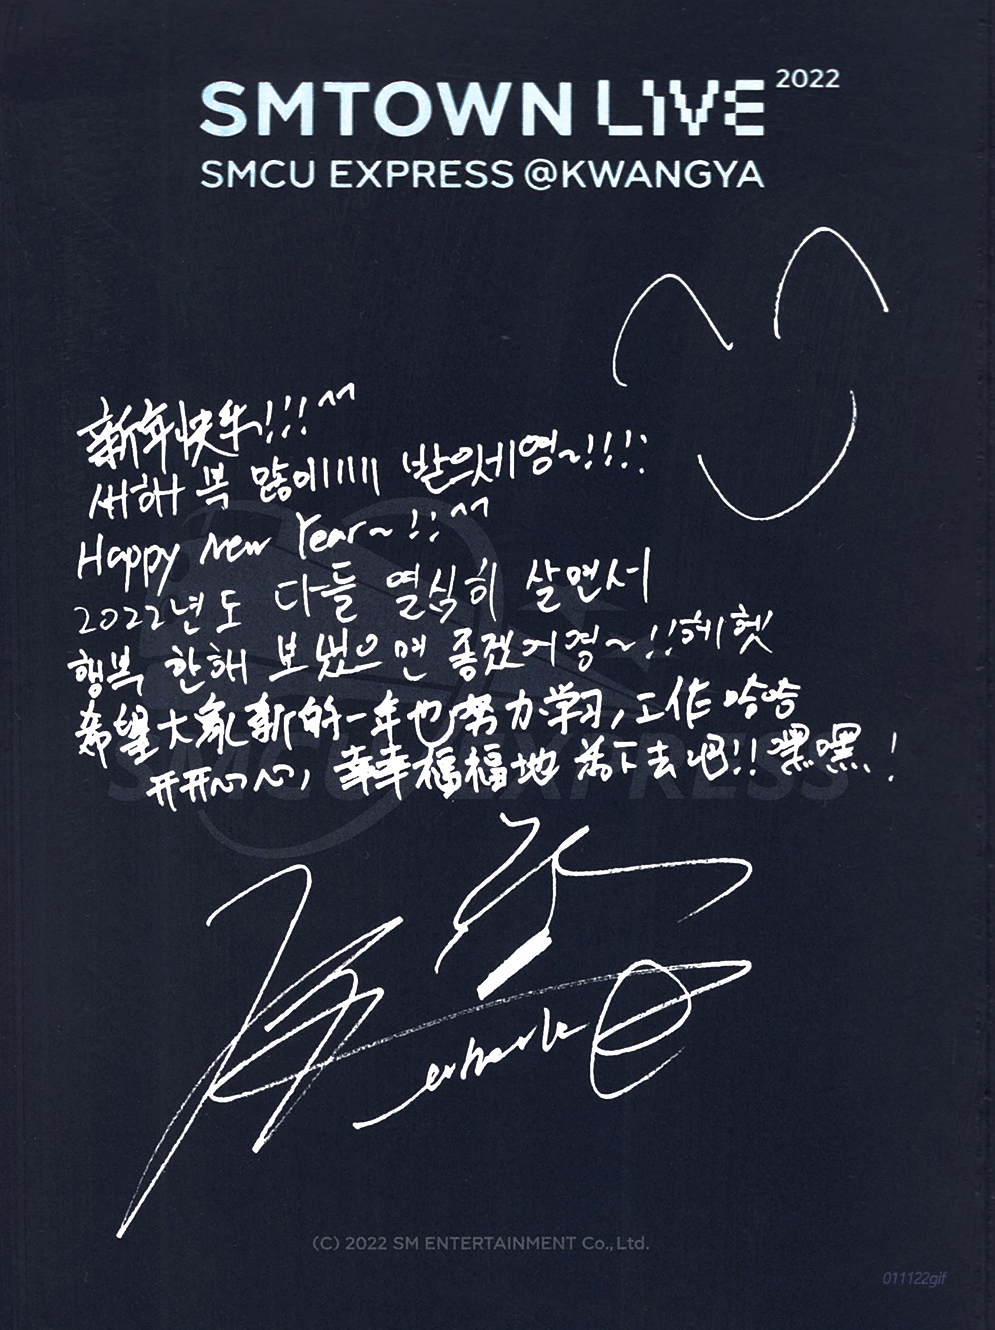 SMTOWN LIVE 2022
SMCU EXPRESS @KWANGYA
新年快乐!!! ^^
새해 복 많이IIIII 받으세영~!!!!
Happy New Year~!! ^^
2022년도 다들 열심히 살면서
행복 한해 보냈으면 좋겠어영~!!헤헷
希望大家新的一年也努力学习,工作哈哈
开开心心,幸幸福福地 活下去吧!!嘿嘿!
SMCU EXPRESS
(C) 2022 SM ENTERTAINMENT Co., Ltd.
011122gif